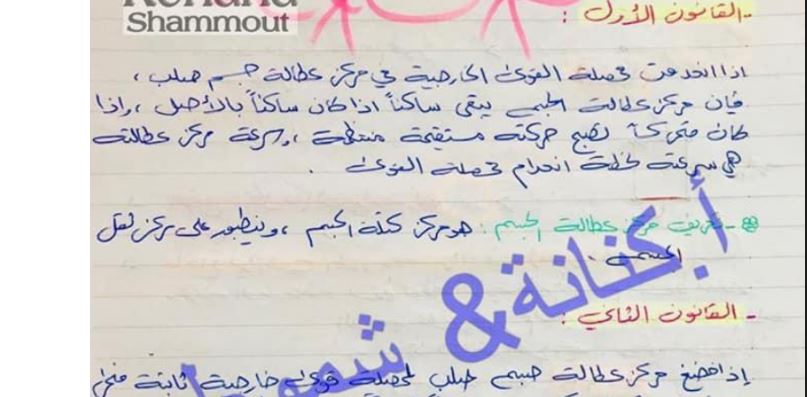 Kenana
Shammout
- القانون الأول :
اذا انعدمت محصلة القوى الخارجية في مركز عطالة جسم صلب ،
فإن مركز عطالة الجسم يبقى ساكناً اذا كان ساكناً بالأصل ، واذا
كان متحركاً تصبح حركته مستقيمة منتظمة ، وسرعة مركز عطالته
هي سرعته لحظة انعدام محصلة القوى .
- تعريف مركز عطالة الجسم : هو مركز كتلة الجسم ، وينطبق على مركز ثقل
الجسم .
أ. كنانة & شموط
- القانون الثاني :
إذا خضع مركز عطالة جسم صلب لمحصلة قوى خارجية ثابتة منحى